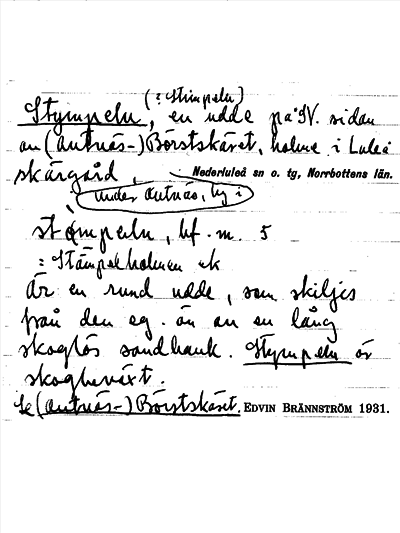 (: Stimpeln)
Stympeln, en udde på SV. sidan
av (Antnäs-) Börstskäret, holme i Luleå
skärgård,
Nederluleå sn o. tg, Norrbottens län.
under Antnäs, by i
stømpeln, bf. m. 5
= Stämpelholmen
Är en rund udde, som skiljes
från den eg. ön av en lång
skoglös sandbank. Stympeln är
skogbeväxt.
Se (Antnäs-) Börstskäret. EDVIN BRÄNNSTRÖM 1931.